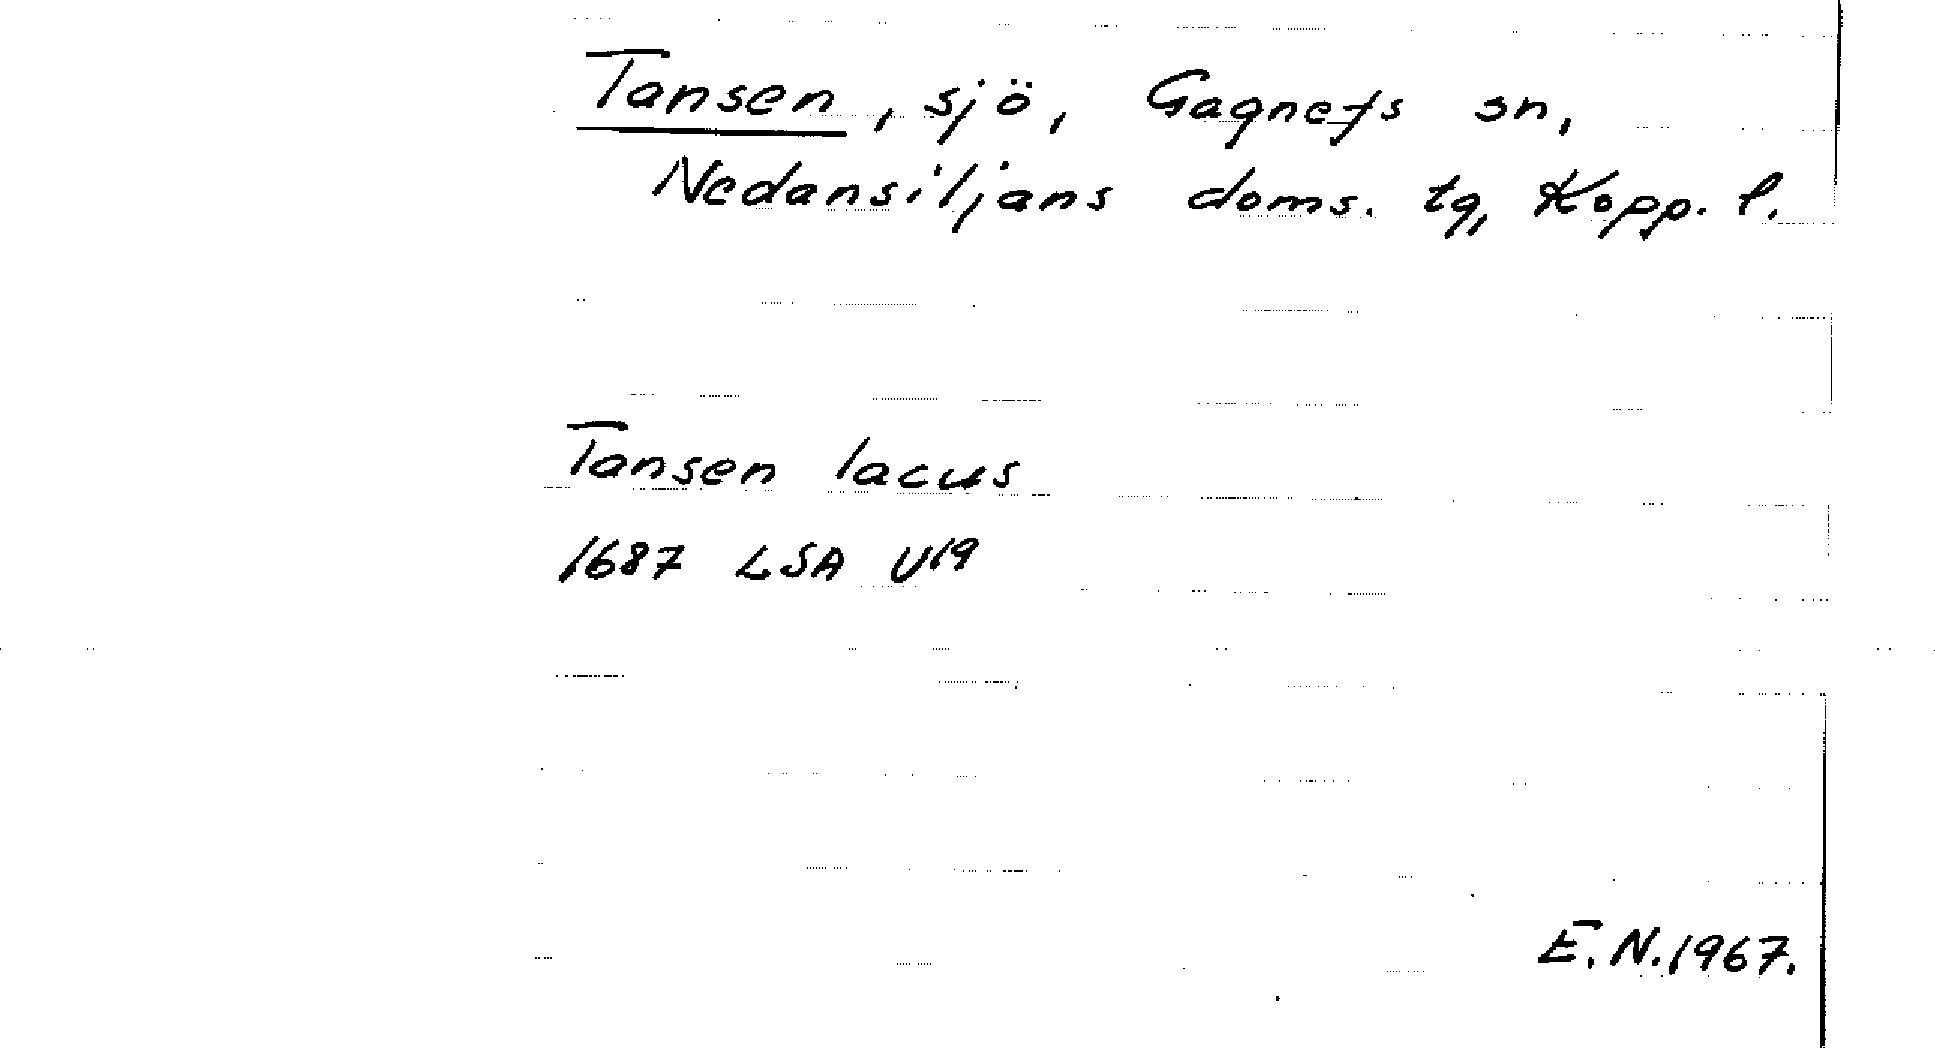 Tansen, sjö, Gagnefs sn,
Nedansiljans doms. tg, Kopp. l.
Tansen lacus
1687 LSA U19
E.N.1967.